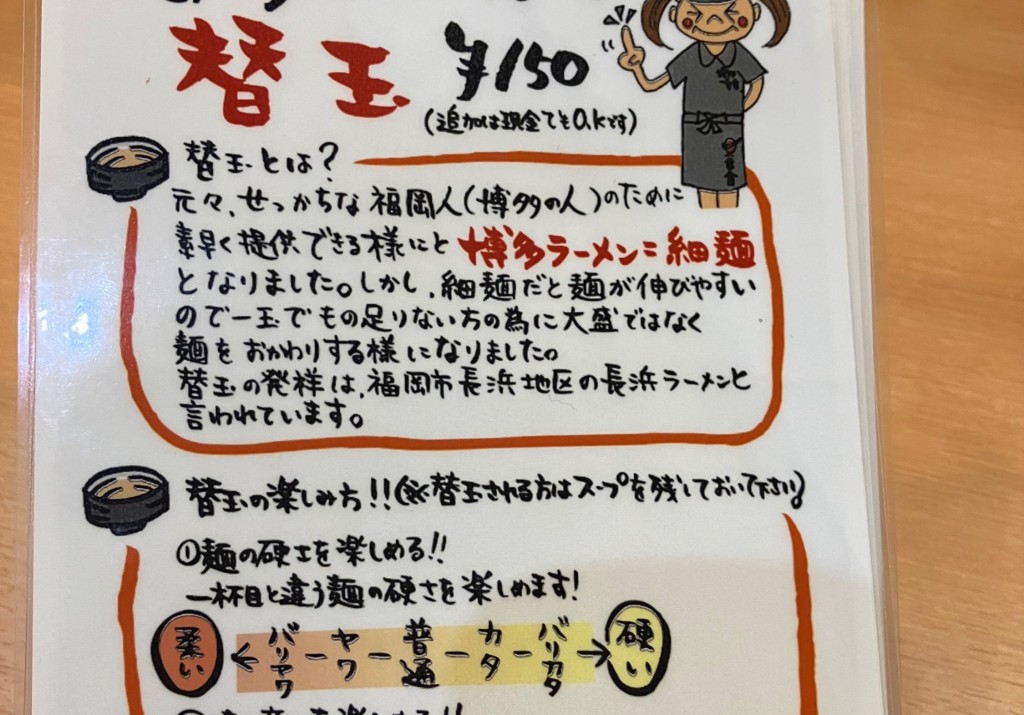 替玉 ¥150
(追加は現金でもO.Kです)
替玉とは?
元々、せっかちな福岡人(博多の人)のために
素早く提供できる様にと 博多ラーメン=細麺
となりました。しかし、細麺だと麺が伸びやすい
ので一玉でもの足りない方の為に大盛ではなく
麺をおかわりする様になりました。
替玉の発祥は、福岡市長浜地区の長浜ラーメンと
言われています。
替玉の楽しみ方!!(※替玉される方はスープを残しておいて下さい)
①麺の硬さを楽しめる!!
一杯目と違う麺の硬さを楽しめます!
柔い ← バリヤワ - ヤワ - 普通 - カタ - バリカタ → 硬い